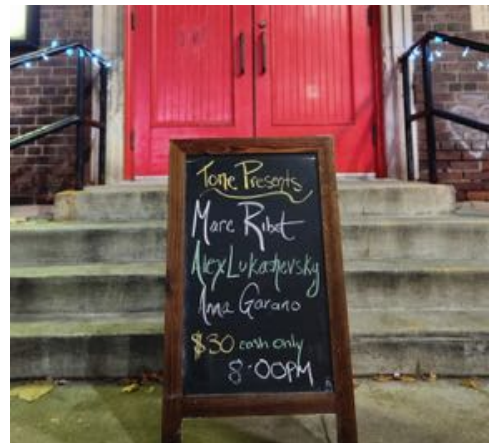 Tone Presents
Marc Ribot
Alex Lukashevsky
Anna Garano
$30 cash only
8:00PM